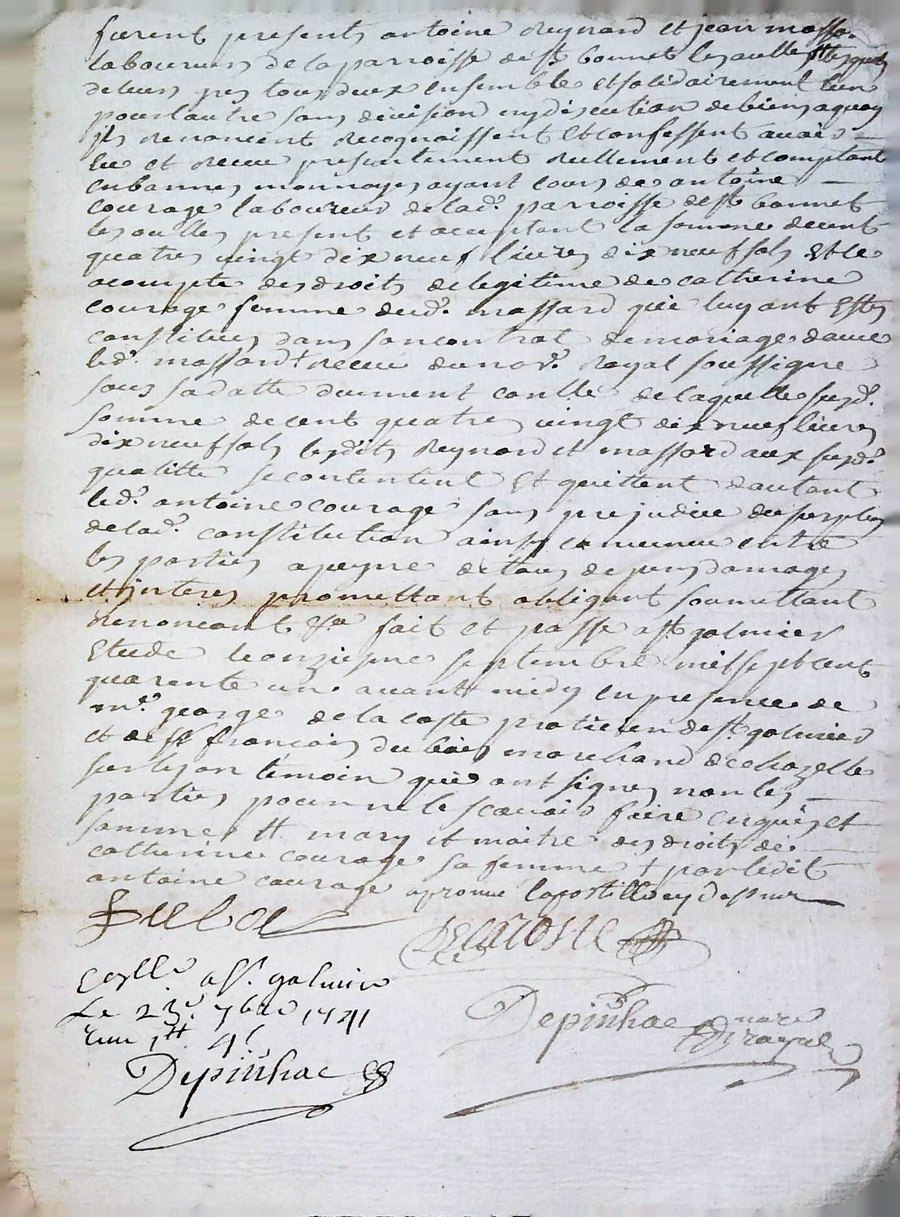 furent presents antoine Reynard et jean massard
laboureurs de la parroisse de st bonnet les oulles lesquels
de leurs grés tous deux ensemble et solidairement l'un
pour l'autre sans division ny discution de biens a quoy
ils renoncent recognaissent et confessent avoir
eu et receu presentement reellement et comptant
en bonnes monnoyes ayant cours de antoine
courage laboureur de lad. parroisse de st bonnet
les oulles present et acceptant la somme de cent
quatre vingt dix neuf livres dix neuf sols et ce
acompte des droits de legitime de catherine
courage femme dud. massard que luy ont estés
constitués dans son contrat de mariage avec
led. massard receu du nore. Royal soussigné
sous sa datte duement conllé de laquelle susd.
somme de cent quatre vingt dix neuf livres
dix neuf sols lesdits Reynard et massard aux susd.
qualitté se contentent et quittent d'autant
led. antoine courage sans prejudice du surplus
de lad. constitution ainsy convenu entre
les parties a peyne de tous depens damages
et interes promettant obligeant soumettant
renoncant &a fait et passé a st galmier
Etude le onziesme septembre mil sept cent
quarente un avant midy en presence de
mr. george de la coste praticien de st galmier
et de sr françois dubois marchand de chazelle
sur lyon temoin qui ont signes non les
parties pour ne le scavoir faire enquis et
sommes tt mary et maitre des droits de
catherine courage sa femme + par ledit
antoine courage aprouvé l'apostille cy dessus
Delacoste
conllé a st. galmier
Le 23e 7bre 1741
Depinhac nore
Royal
Depinhac